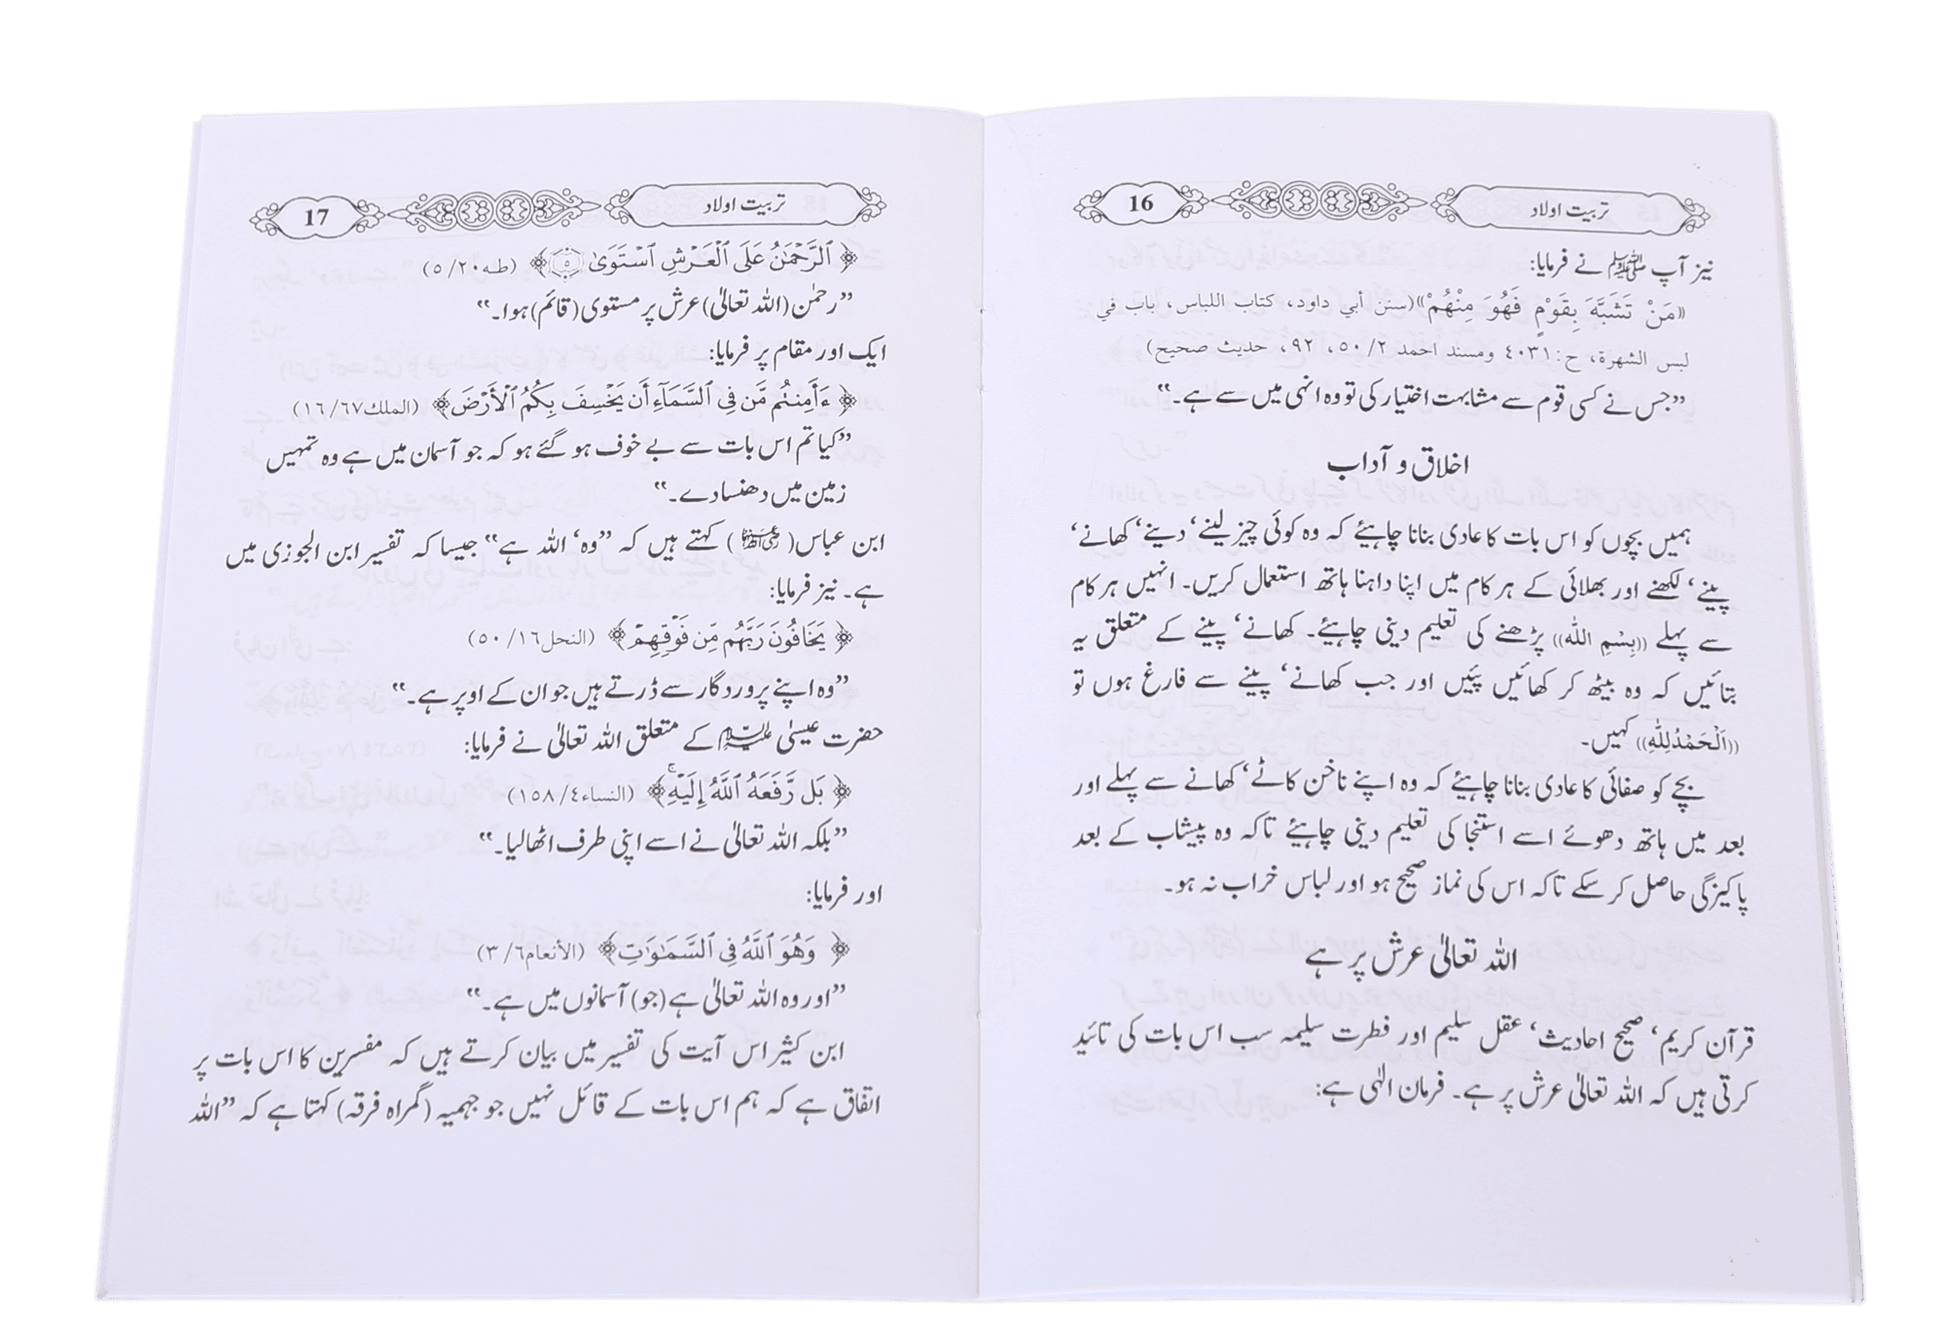 تربیت اولاد 16
نیز آپ ﷺ نے فرمایا:
«مَنْ تَشَبَّهَ بِقَوْمٍ فَهُوَ مِنْهُمْ»(سنن أبي داود، كتاب اللباس، باب في
لبس الشهرة، ح:٤٠٣١ ومسند احمد ٢/٥٠، ٩٢، حديث صحيح)
”جس نے کسی قوم سے مشابہت اختیار کی تو وہ انہی میں سے ہے۔“
اخلاق و آداب
ہمیں بچوں کو اس بات کا عادی بنانا چاہیئے کہ وہ کوئی چیز لینے‘ دینے‘ کھانے‘
پینے‘ لکھنے اور بھلائی کے ہر کام میں اپنا داہنا ہاتھ استعمال کریں۔ انہیں ہر کام
سے پہلے ((بِسْمِ اللہ)) پڑھنے کی تعلیم دینی چاہیئے۔ کھانے‘ پینے کے متعلق یہ
بتائیں کہ وہ بیٹھ کر کھائیں پئیں اور جب کھانے‘ پینے سے فارغ ہوں تو
((اَلْحَمْدُلِلّٰہِ)) کہیں۔
بچے کو صفائی کا عادی بنانا چاہیئے کہ وہ اپنے ناخن کاٹے‘ کھانے سے پہلے اور
بعد میں ہاتھ دھوئے اسے استنجا کی تعلیم دینی چاہیئے تاکہ وہ پیشاب کے بعد
پاکیزگی حاصل کر سکے تاکہ اس کی نماز صحیح ہو اور لباس خراب نہ ہو۔
اللہ تعالیٰ عرش پر ہے
قرآن کریم‘ صحیح احادیث‘ عقل سلیم اور فطرت سلیمہ سب اس بات کی تائید
کرتی ہیں کہ اللہ تعالیٰ عرش پر ہے۔ فرمان الٰہی ہے:
تربیت اولاد 17
﴿ ٱلرَّحْمَٰنُ عَلَى ٱلْعَرْشِ ٱسْتَوَىٰ ۝٥﴾ (طه٢٠/٥)
”رحمٰن (اللہ تعالیٰ) عرش پر مستوی (قائم) ہوا۔“
ایک اور مقام پر فرمایا:
﴿ ءَأَمِنتُم مَّن فِى ٱلسَّمَآءِ أَن يَخْسِفَ بِكُمُ ٱلْأَرْضَ﴾ (الملك٦٧/١٦)
”کیا تم اس بات سے بے خوف ہو گئے ہو کہ جو آسمان میں ہے وہ تمہیں
زمین میں دھنسادے۔“
ابن عباس( رضی اللہ عنہما ) کہتے ہیں کہ ”وہ‘ اللہ ہے“ جیسا کہ تفسیر ابن الجوزی میں
ہے۔ نیز فرمایا:
﴿ يَخَافُونَ رَبَّهُم مِّن فَوْقِهِمْ﴾ (النحل١٦/٥٠)
”وہ اپنے پروردگار سے ڈرتے ہیں جو ان کے اوپر ہے۔“
حضرت عیسیٰ علیہ السلام کے متعلق اللہ تعالیٰ نے فرمایا:
﴿ بَل رَّفَعَهُ ٱللَّهُ إِلَيْهِ ۚ﴾ (النساء٤/١٥٨)
”بلکہ اللہ تعالیٰ نے اسے اپنی طرف اٹھالیا۔“
اور فرمایا:
﴿ وَهُوَ ٱللَّهُ فِى ٱلسَّمَٰوَٰتِ﴾ (الأنعام٦/٣)
”اور وہ اللہ تعالیٰ ہے (جو) آسمانوں میں ہے۔“
ابن کثیر اس آیت کی تفسیر میں بیان کرتے ہیں کہ مفسرین کا اس بات پر
اتفاق ہے کہ ہم اس بات کے قائل نہیں جو جہمیہ (گمراہ فرقہ) کہتا ہے کہ ”اللہ